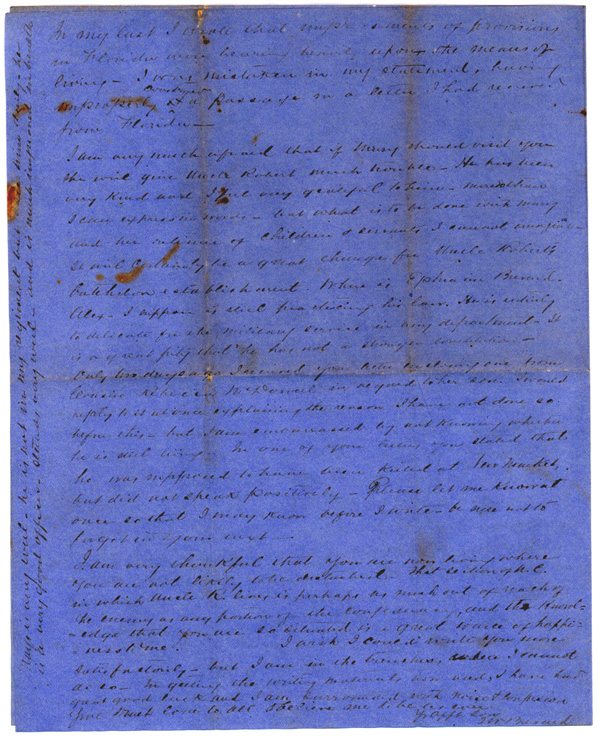 In my last I wrote that impressments of provisions
in Florida were bearing hard upon the means of
living - I was mistaken in my statement, having
improperly construed a passage in a letter I had received
from Florida -
I am very much afraid that if Mary should visit you
she will give Uncle Robert much trouble - He has been
very kind and I feel very grateful to him - more than
I can express in words - but what is to be done with Mary
and her retinue of children & servants I cannot imagine
It will certainly be a great change for Uncle Robert's
batchelor establishment. Where is Ephraim Brevard -
Alex - I suppose is still practicing his law. He is entirely
too delicate for the military service in any department - It
is a great pity that he has not a stronger constitution -
Only two days ago I received your letter enclosing one from
Cousin Rebecca McDowell in regard to her son. I would
reply to it at once explaining the reason I have not done so
before this - but I am embarrassed by not knowing whether
he is still living. In one of your letters you stated that
he was supposed to have been killed at New Market,
but did not speak positively - Please let me know at
once so that I may know before I write - be sure not to
forget in your next -
I am very thankful that you are now living where
you are not likely to be disturbed - That section of N.C.
in which Uncle R. lives is perhaps as much out of reach of
the enemy as any portion of the confederacy, and the knowl
-edge that you are so situated is a great source of happi
-ness to me. I wish I could write you more
satisfactorily - but I am in the trenches, where I cannot
do so - In getting the writing materials now used, I have had
quite good luck but I am surrounded with
Give much love to all & believe me to be as ever
Yr affte Son
T W Brevard
is very well - he is not in my regiment but
is a very good officer - stands very well - and is much improved in health